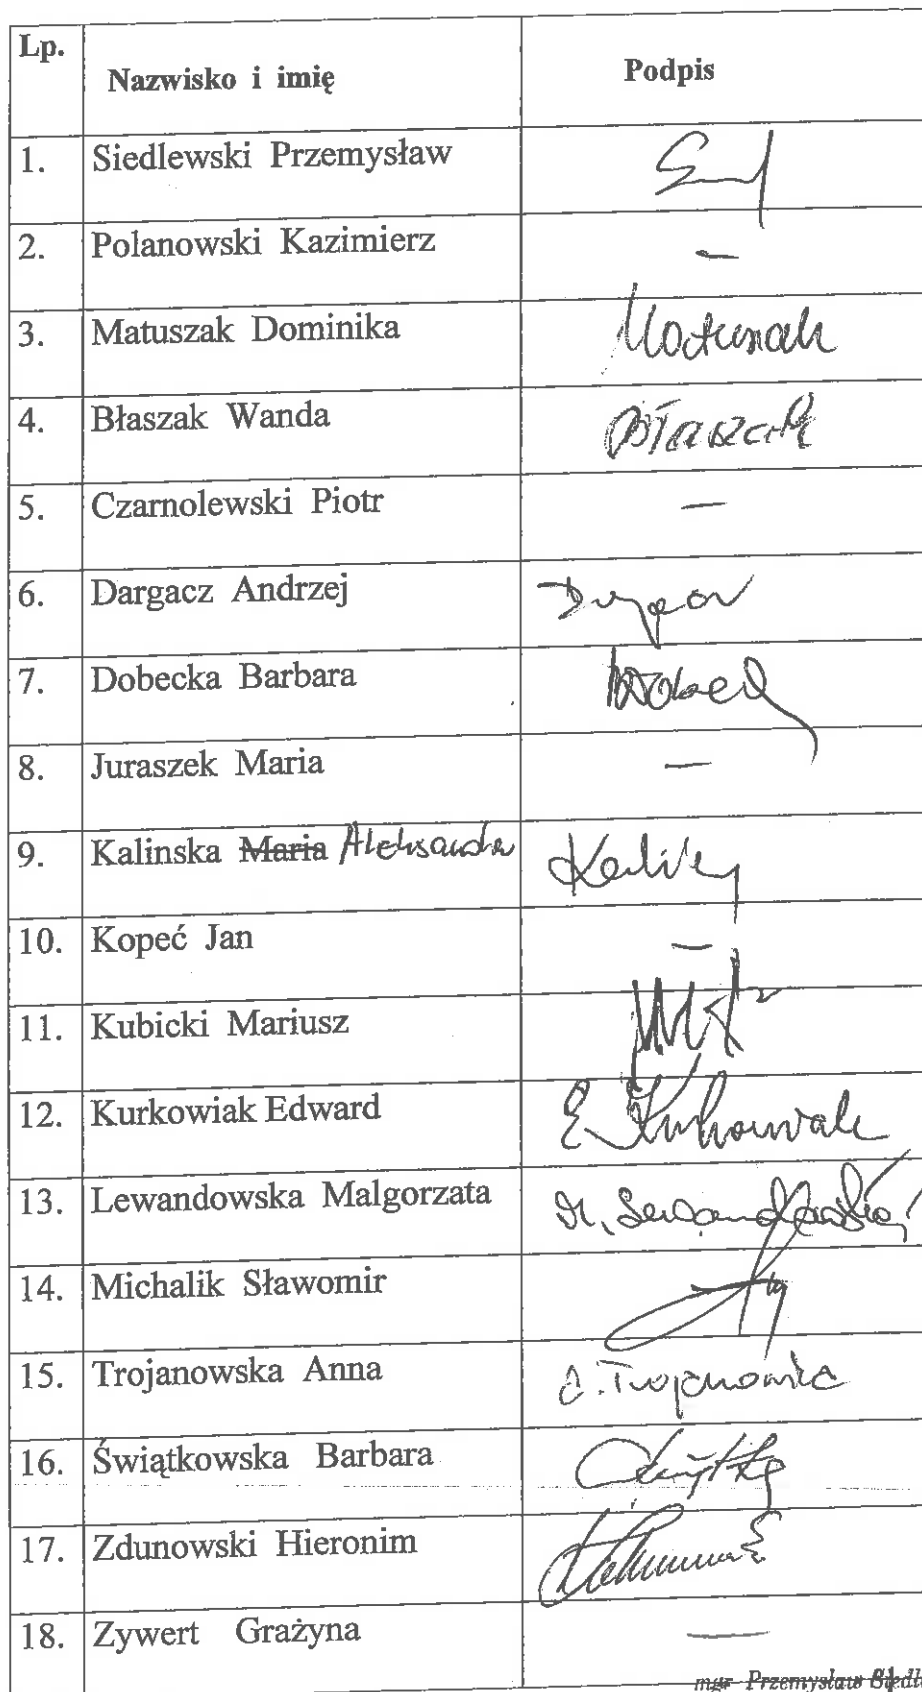 Lp. Nazwisko i imię Podpis
1. Siedlewski Przemysław
2. Polanowski Kazimierz –
3. Matuszak Dominika Matuszak
4. Błaszak Wanda Błaszak
5. Czarnolewski Piotr –
6. Dargacz Andrzej
7. Dobecka Barbara
8. Juraszek Maria –
9. Kalinska Maria Aleksandra
10. Kopeć Jan –
11. Kubicki Mariusz
12. Kurkowiak Edward E. Kurkowiak
13. Lewandowska Malgorzata M. Lewandowska
14. Michalik Sławomir
15. Trojanowska Anna A. Trojanowska
16. Świątkowska Barbara
17. Zdunowski Hieronim
18. Zywert Grażyna –
mgr Przemysław Siedl